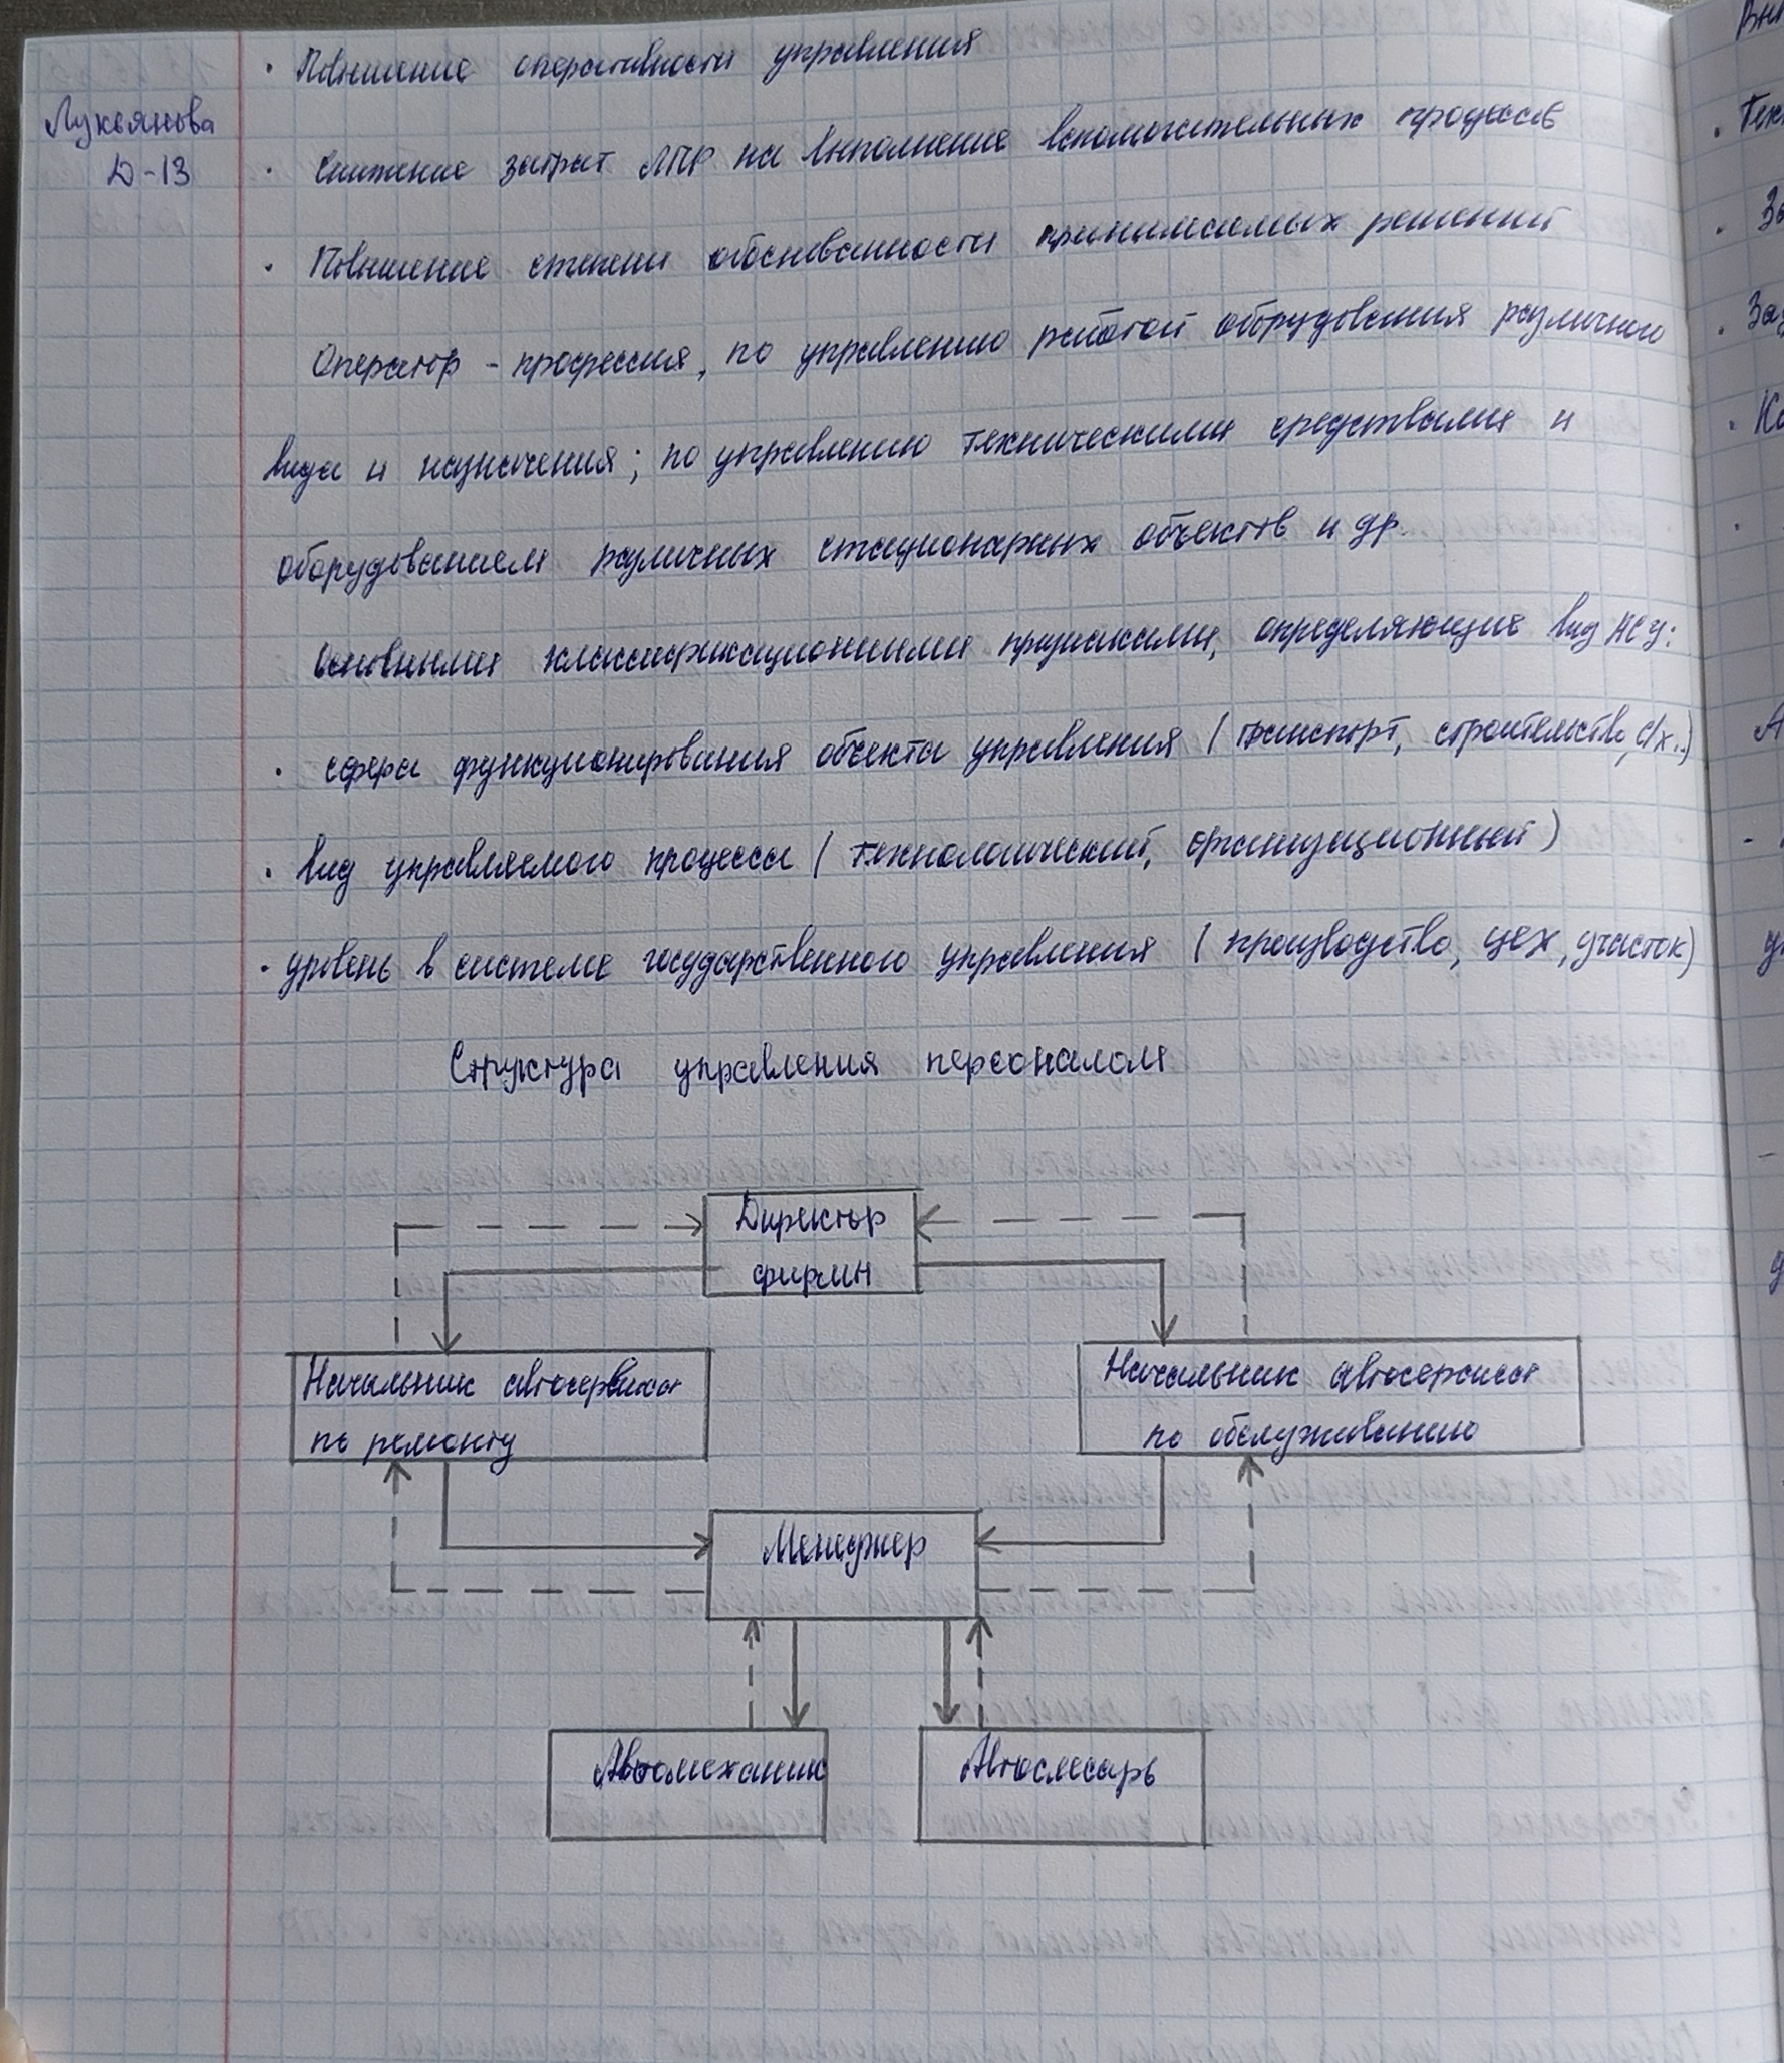 Лукьянова
Д-13
· Повышение оперативности управления
· Снижение затрат ЛПР на выполнение вспомогательных процессов
· Повышение степени обоснованности принимаемых решений
Оператор - профессия, по управлению работой оборудования различного
вида и назначения; по управлению техническими средствами и
оборудованием различных стационарных объектов и др.
Основными классификационными признаками, определяющие вид АСУ:
· сфера функционирования объекта управления (транспорт, строительство, с/х..)
· вид управляемого процесса (технологический, организационный)
· уровень в системе государственного управления (производство, цех, участок)
Структура управления персоналом
Директор
фирмы
Начальник автосервиса
по ремонту
Начальник автосервиса
по обслуживанию
Менеджер
Автомеханик
Автослесарь